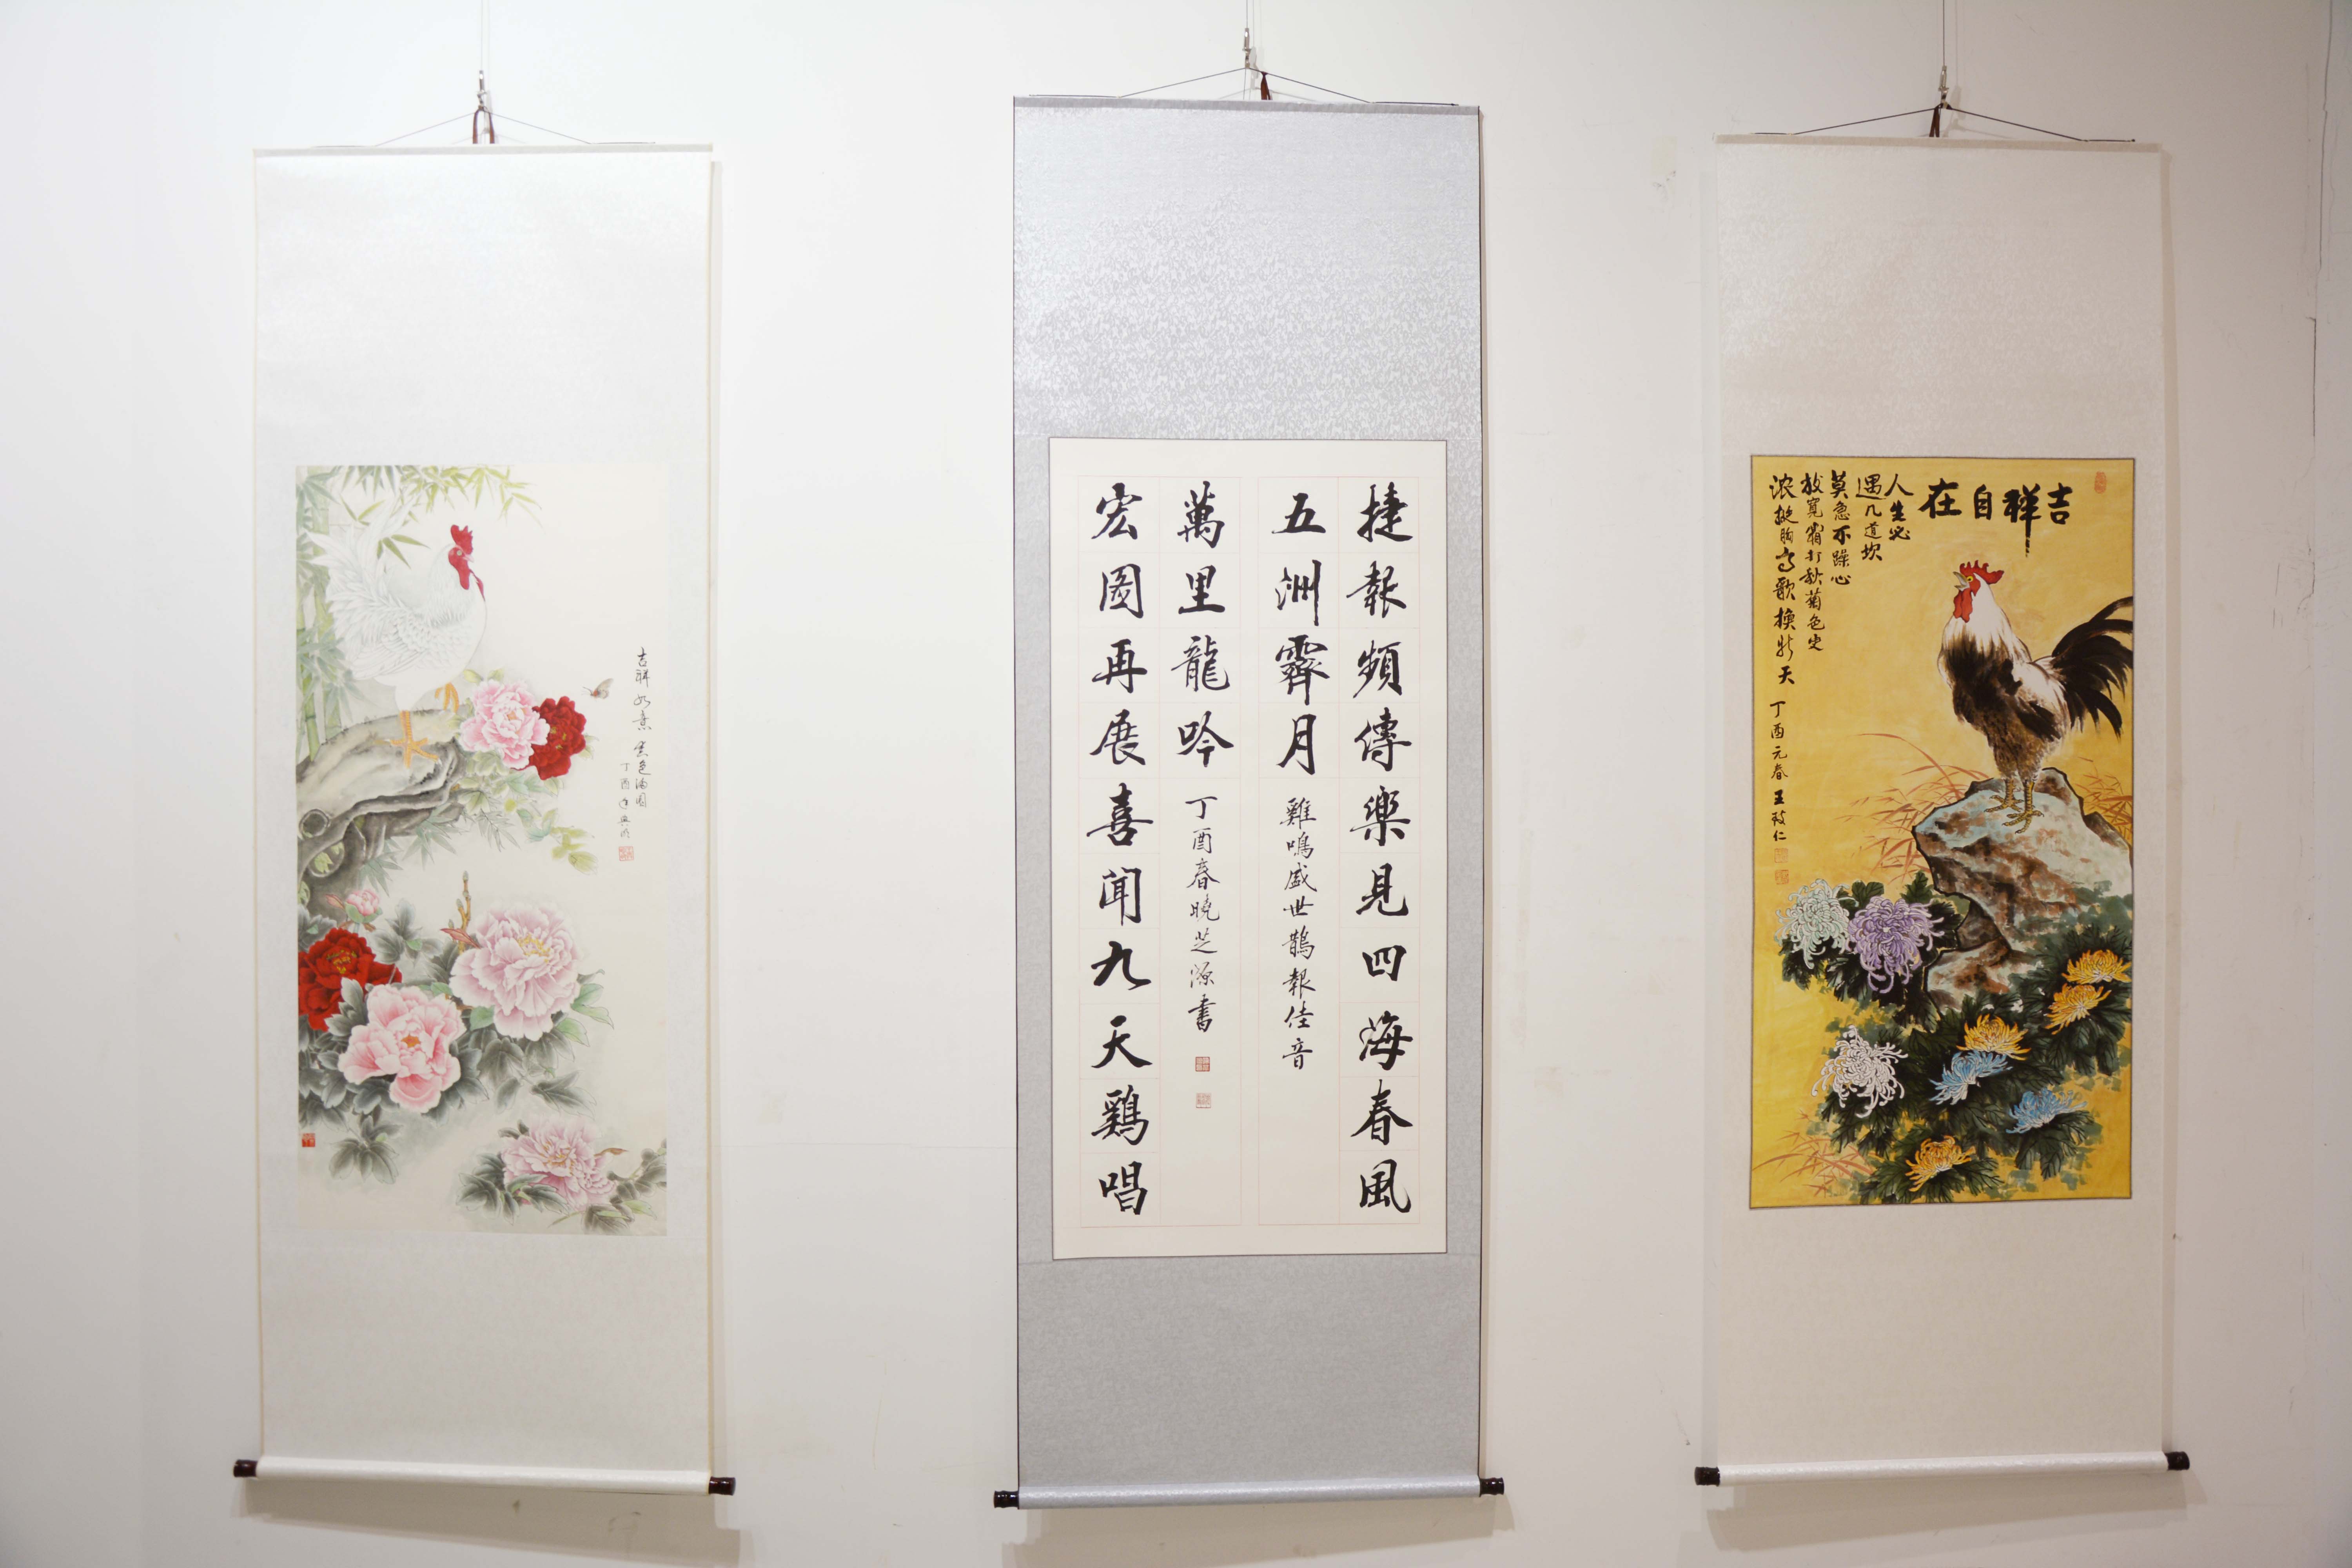 吉祥如意
丁酉年
捷報頻傳樂見四海春風
五洲霽月
雞鳴盛世鵲報佳音
萬里龍吟
丁酉春曉芝源書
宏圖再展喜聞九天鷄唱
吉祥自在
人生必
遇几道坎
莫急不躁心
放寬霜打秋菊色更
浓挺胸高歌換新天
丁酉元春王致仁